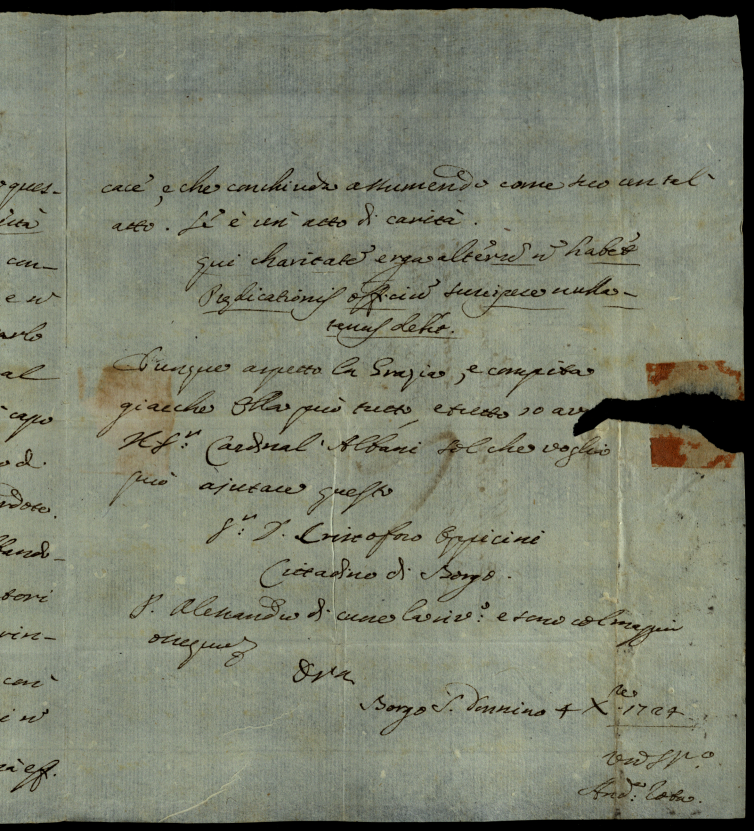 oques-
cità
con-
e n
arlo
al
capo
o di
ndoto.
fando-
tori
vin-
con
i n
cace, e che conchiuda assumendo come suo un tal
atto. Sì è un atto di carità.
qui charitatē erga alterū n̄ habet
Prędicationis officiū suscipere nulla-
tenus debt.
Dunque aspetto la Grazia, e compita
giacche Ella può tutto, e tutto so
Il Sr. Cardinal Albani sol che voglia
può ajutare questo
Sr. D. Cristoforo Oppicini
Cittadino di Borgo.
S. Alessandro di e sono col maggior
ossequio
D V S
Borgo S. Donnino 4 Xbre 1724
And.